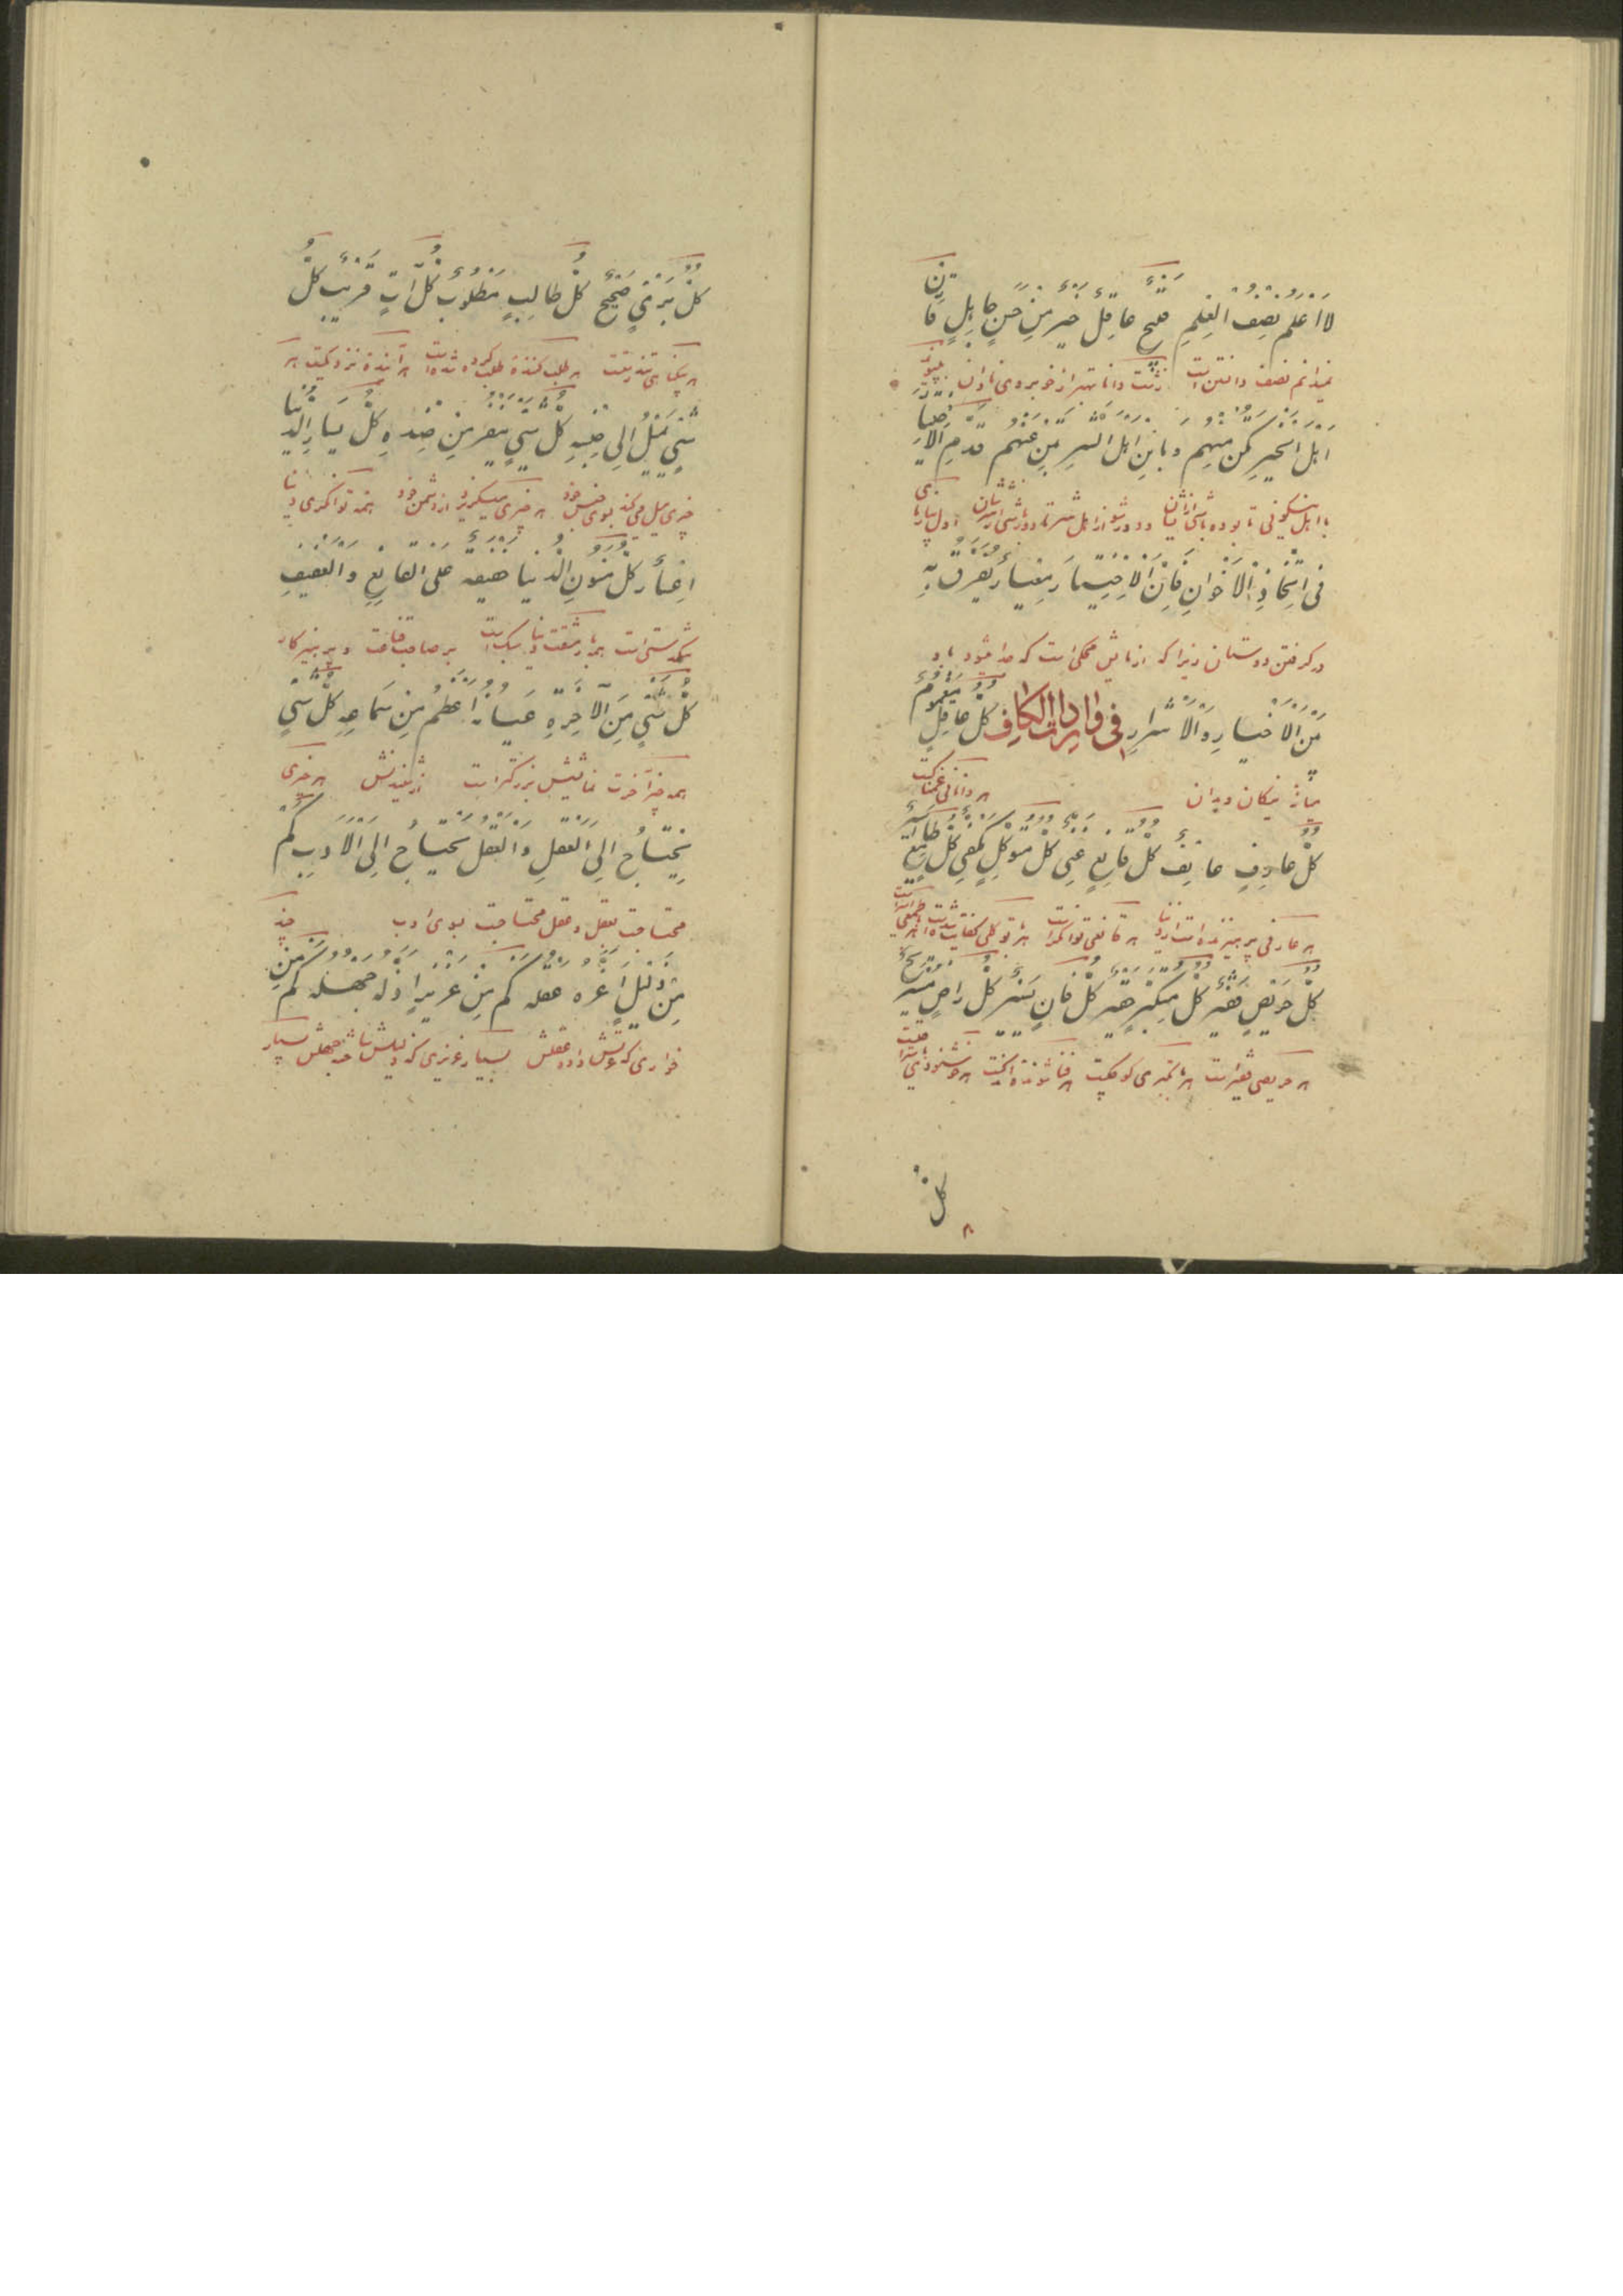 لَا اَعْلَمُ نِصْفُ الْعِلْمِ قَبِيحٌ عَاقِلٌ خَيْرٌ مِنْ حَسَنٍ جَاهِلٍ قَارِنْ
نمیدانم نصف دانستن است زشت دانا بهتر از خوبروی نادان
اَهْلَ الْخَيْرِ تَكُنْ مِنْهُمْ وَبَايِنْ اَهْلَ الشَّرِّ تَبِنْ عَنْهُمْ قَدِّمِ الْاِخْتِبَارَ
با اهل نیکوئی تا بوده باشی از ایشان و دور شو از اهل شر تا دور باشی از ایشان اول
فِي اتِّخَاذِ الْاِخْوَانِ فَاِنَّ الْاِخْتِبَارَ مِعْيَارٌ يُفَرَّقُ بِهِ
در گرفتن دوستان زیرا که ازمایش محکی است که جدا میشود باو
بَيْنَ الْاَخْيَارِ وَالْاَشْرَارِ فی واردات الکاف كُلُّ عَاقِلٍ مَغْمُومٌ
میانه نیکان وبدان هر دانائی غمناکست
كُلُّ عَارِفٍ عَائِفٌ كُلُّ قَانِعٍ غَنِيٌّ كُلُّ مُتَوَكِّلٍ مَكْفِيٌّ كُلُّ طَامِعٍ اَسِيرٌ
هر عارفی پرهیزنده است از دنیا هر قانعی توانگر است هر توکلی کفایت شده است
كُلُّ حَرِيصٍ فَقِيرٌ كُلُّ مُتَكَبِّرٍ حَقِيرٌ كُلُّ فَانٍ يَسِيرٌ كُلُّ رَاضٍ مُسْتَرِيحٌ
هر حریصی فقیر است هر متکبری کوچکست هر فنا شونده اندکیست هر خوشنودی
كل
كُلُّ بَرِيءٍ صَحِيحٌ كُلُّ طَالِبٍ مَطْلُوبٌ كُلُّ آتٍ قَرِيبٌ كُلُّ
هر بیگناهی تندرستست هر طلب کننده طلب کرده شده است هر آینده نزدیکیست هر
شَيْءٍ يَمِيلُ اِلَى جِنْسِهِ كُلُّ شَيْءٍ يَنْفِرُ مِنْ ضِدِّهِ كُلُّ يَسَارِ الدُّنْيَا
چیزی میل میکند بسوی جنس خود هر چیزی میگریزد از دشمن خود همه توانگری دنیا
اِعْسَارٌ كُلُّ مُؤَنِ الدُّنْيَا خَفِيفَة عَلَى الْقَانِعِ وَالْعَفِيفِ
تنگدستی است همه مشقت دنیا سبک است بر صاحب قناعت و پرهیزکار
كُلُّ شَيْءٍ مِنَ الْآخِرَةِ عِيَانُهُ اَعْظَمُ مِنْ سَمَاعِهِ كُلُّ شَيْءٍ
همه چیز آخرت نمایشش بزرگتر است از شنیدنش هر چیزی
يَحْتَاجُ اِلَى الْعَقْلِ وَالْعَقْلُ يَحْتَاجُ اِلَى الْاَدَبِ كَمْ
محتاجست بعقل وعقل محتاجست بسوی ادب چند
مِنْ ذَلِيلٍ اَعَزَّهُ عَقْلُهُ كَمْ مِنْ عَزِيزٍ اَذَلَّهُ جَهْلُهُ كَمْ مِنْ
خواری که عزتش داده عقلش بسیار عزیزی که ذلیلش ساخته جهلش بسیار